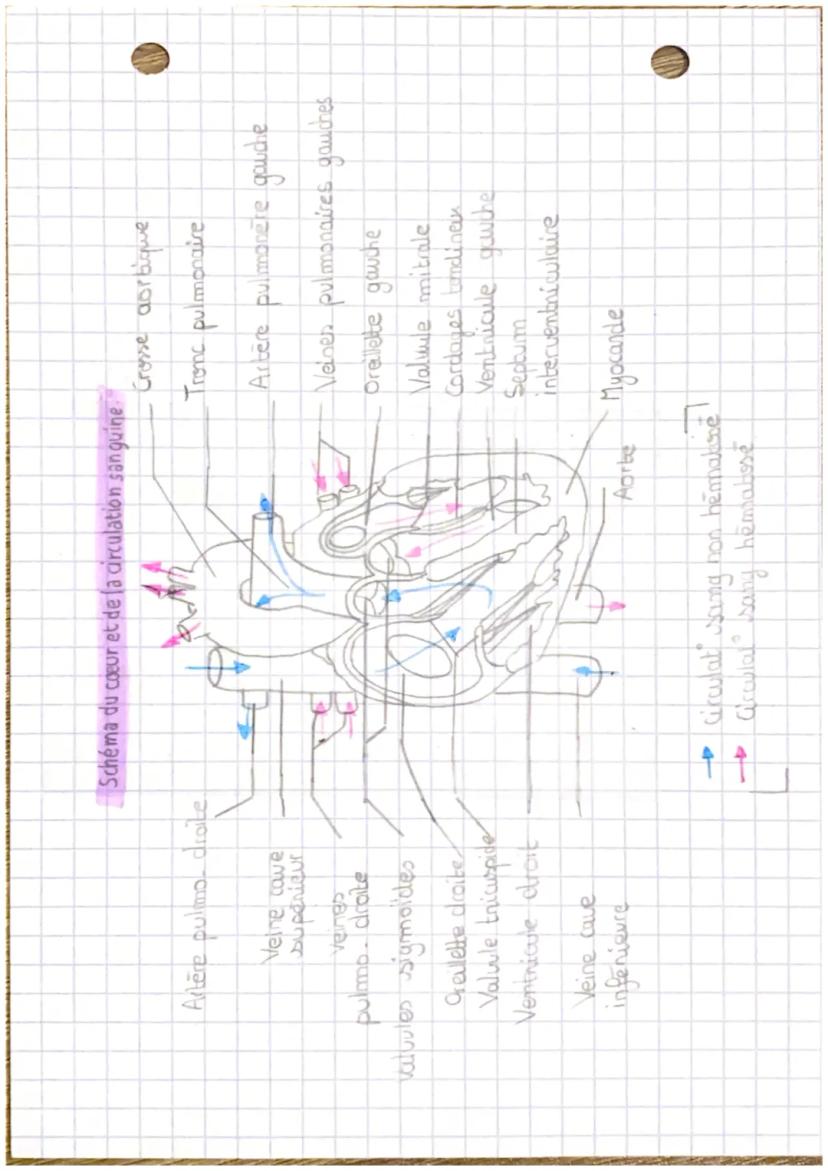 Schéma du cœur et de la circulation sanguine
Crosse aortique
Tronc pulmonaire
Artère pulmonère gauche
Veines pulmonaires gauches
Oreillette gauche
Valvule mitrale
Cordages tendineux
Ventricule gauche
Septum
interventriculaire
Myocarde
Aorte
Artère pulmo. droite
Veine cave
supérieur
Veines
pulmo. droite
Valvules sigmoïdes
Oreillette droite
Valvule tricuspide
Ventricule droit
Veine cave
inférieure
→ circulat° sang non hématosé
→ circulat° sang hématosé